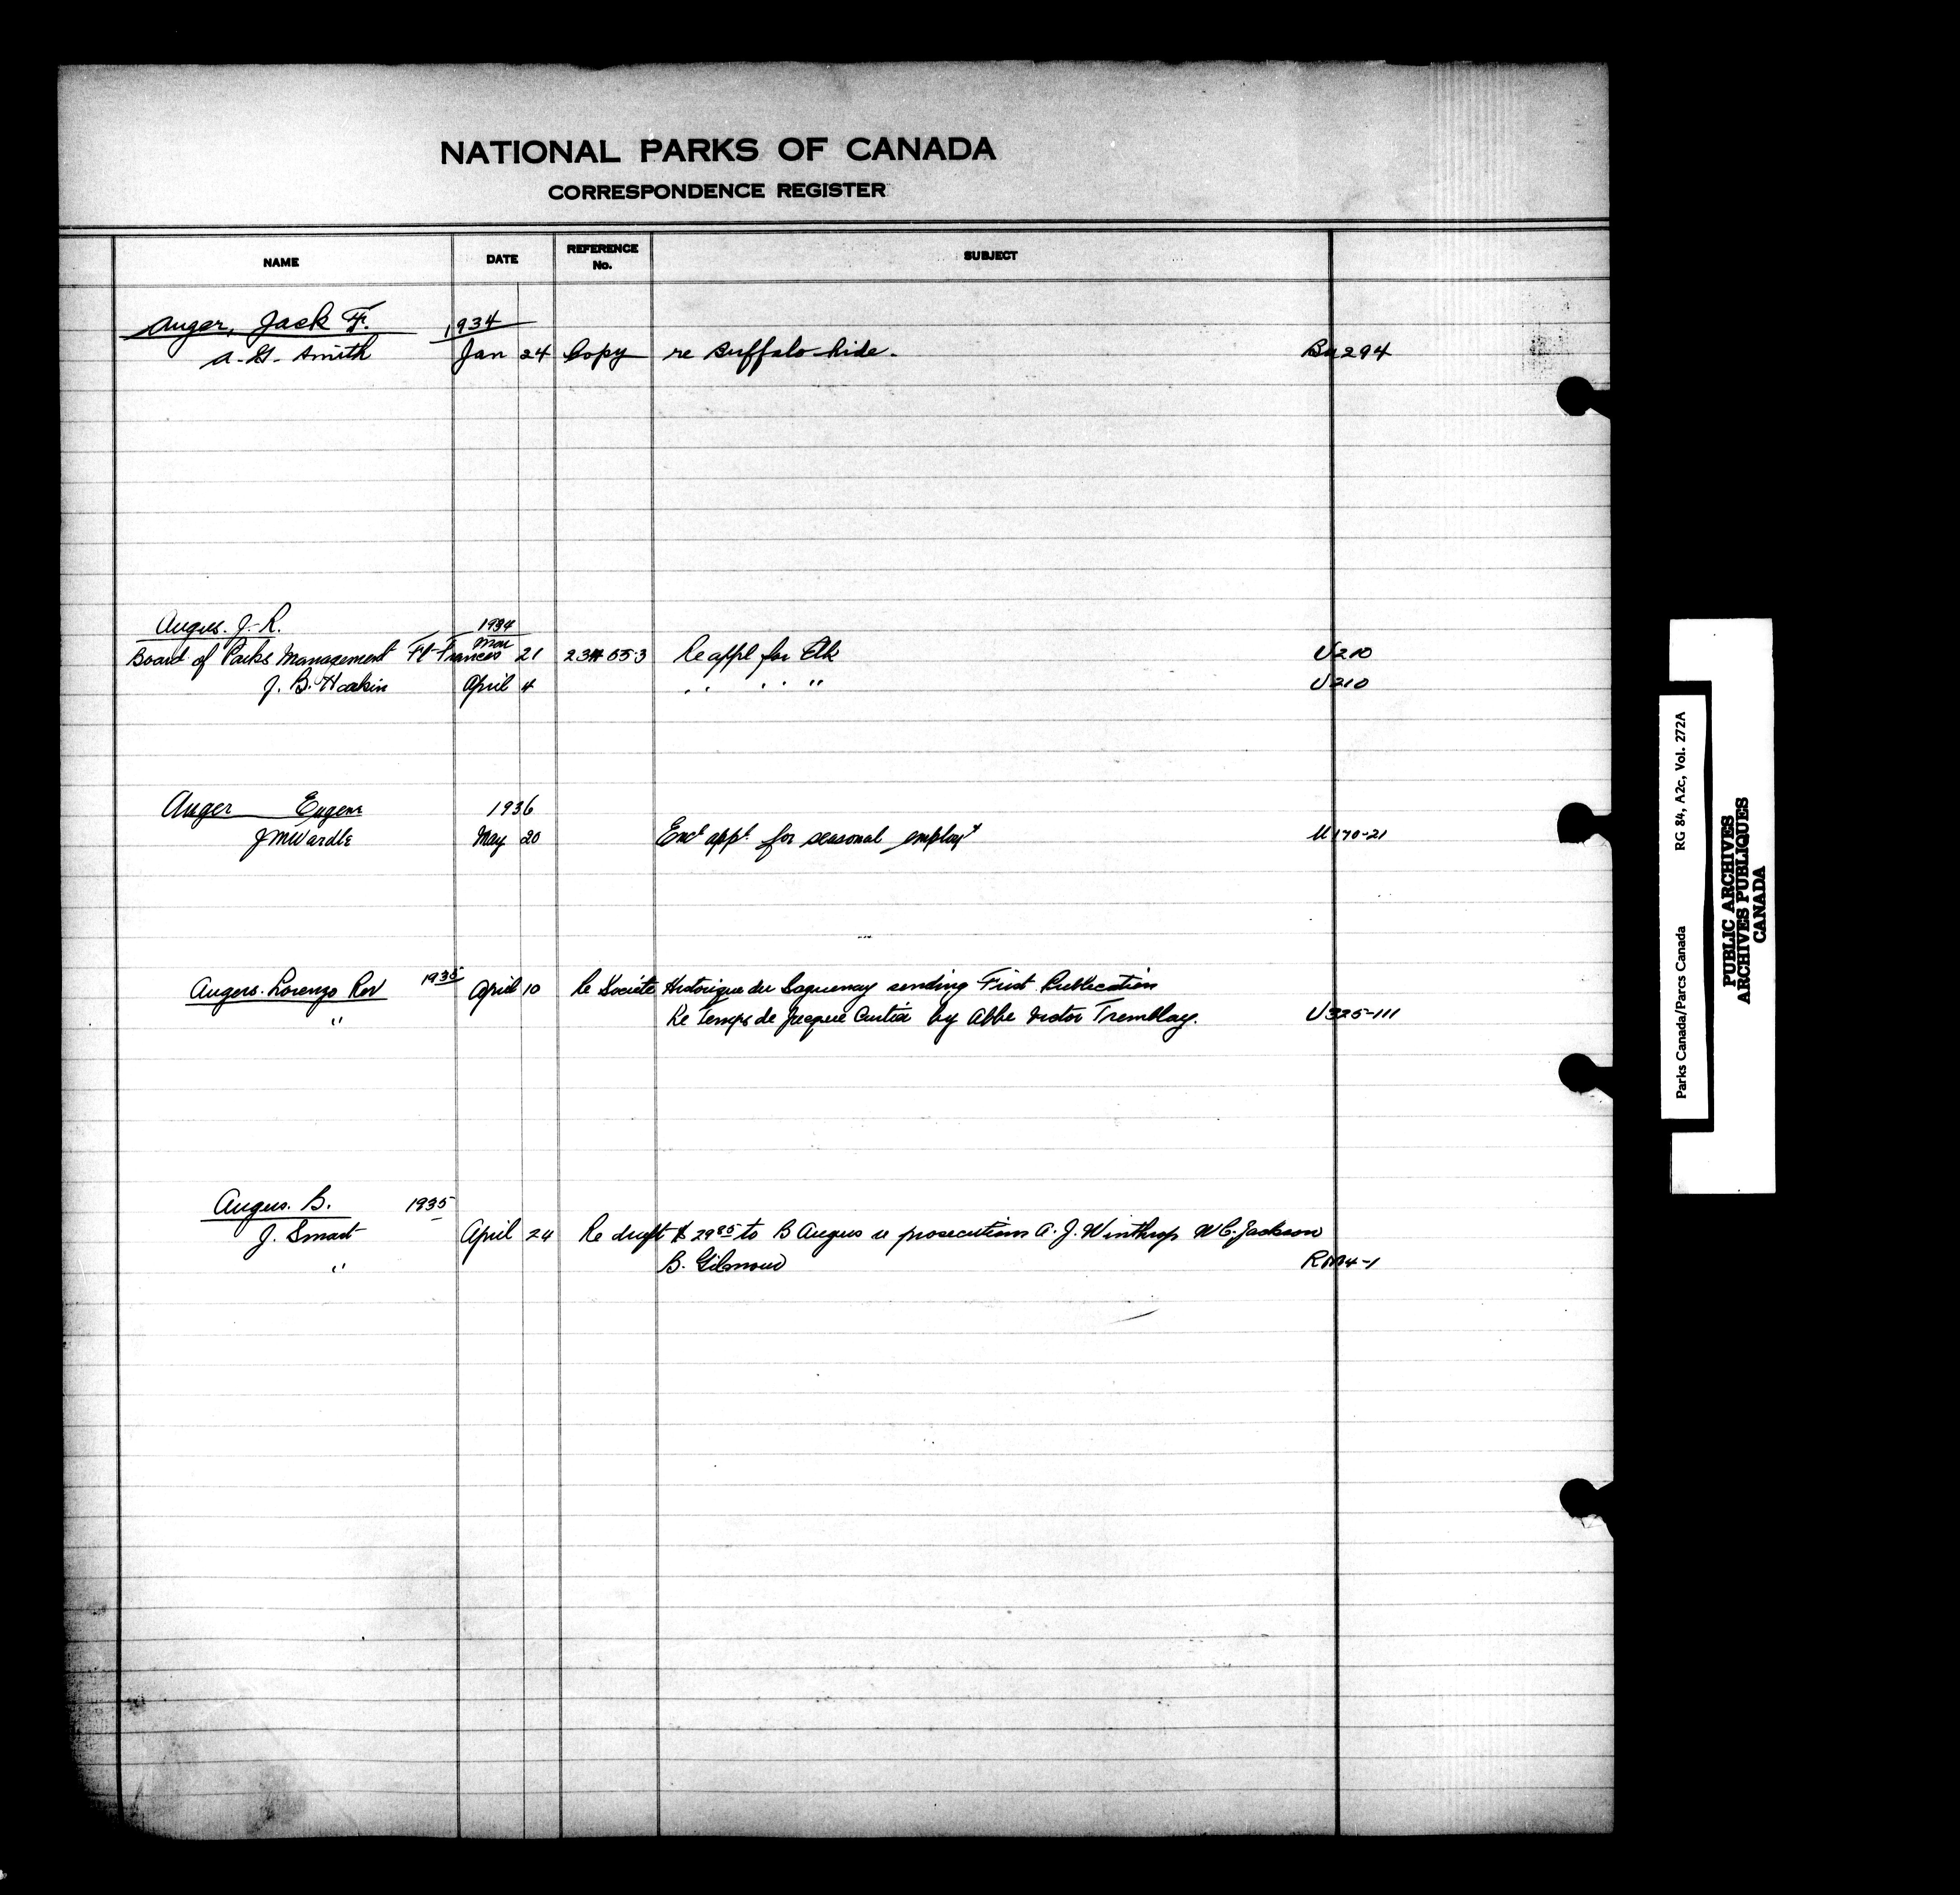 NATIONAL PARKS OF CANADA
CORRESPONDENCE REGISTER
NAME DATE REFERENCE No. SUBJECT
Auger, Jack F. 1934
A. G. Smith Jan 24 Copy re Buffalo hide. Bu294
Angus. J. R. 1934
Board of Parks Management Ft Frances Mar 21 Re appl for Elk U210
J. B. Harkin April 4 " " " U210
Auger Eugene 1936
J M Wardle May 20 Encl appl. for seasonal employt 170-21
Angers. Lorenzo Rev 1935 April 10 Re Société Historique du Saguenay sending First Publication
" Re Temps de Jacques Cartier by Abbe Victor Tremblay. U325-111
Angus. B. 1935
J. Smart April 24 Re draft $ 29 85 to B Angus re prosecutions A. J. Winthrop W C. Jackson
" B. Gilmour RM4-1
Parks Canada/Parcs Canada RG 84, A2c, Vol. 272A
PUBLIC ARCHIVES
ARCHIVES PUBLIQUES
CANADA